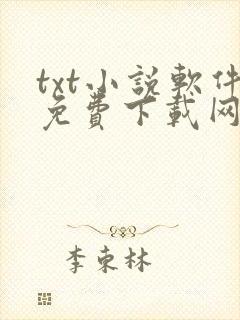 txt小説軟件
免費下載网
李东林